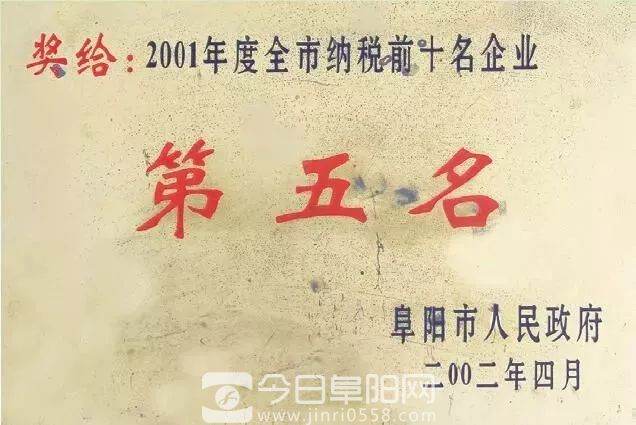 奖给：2001年度全市纳税前十名企业
第五名
阜阳市人民政府
二00二年四月
今日阜阳网
www.jinri0558.com